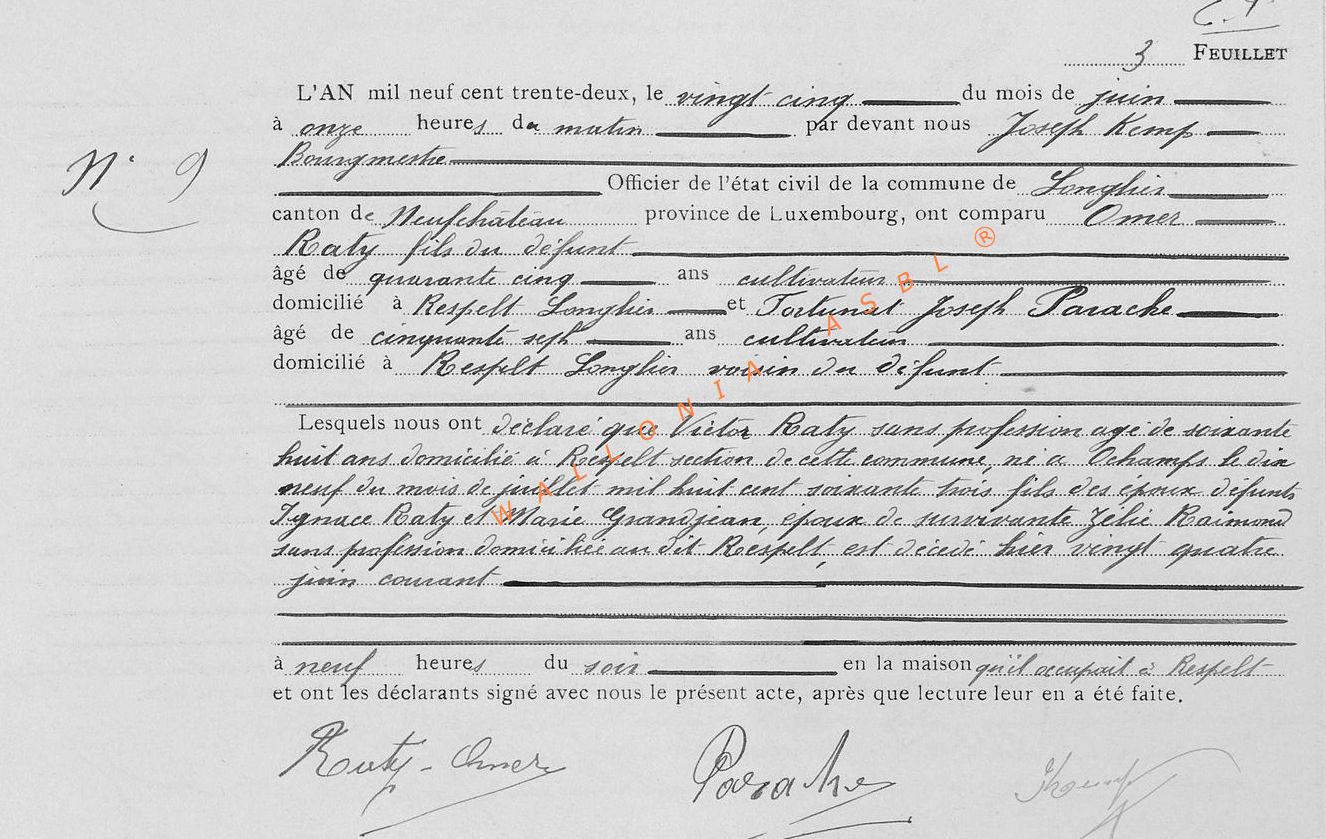 3 FEUILLET
L'AN mil neuf cent trente-deux, le vingt cinq du mois de juin
à onze heures du matin par devant nous Joseph Kemp
Bourgmestre
N° 9
Officier de l'état civil de la commune de Longlier
canton de Neufchâteau province de Luxembourg, ont comparu Omer
Raty fils du défunt
âgé de quarante cinq ans cultivateur
domicilié à Respelt Longlier et Fortunat Joseph Parache
âgé de cinquante sept ans cultivateur
domicilié à Respelt Longlier voisin du défunt
Lesquels nous ont déclaré que Victor Raty sans profession agé de soixante
huit ans domicilié à Respelt section de cette commune, né a Ochamps le dix
neuf du mois de juillet mil huit cent soixante trois fils des époux défunts
Ignace Raty et Marie Grandjean, époux de survivante Zélie Raimond
sans profession domiciliée au dit Respelt, est décédé hier vingt quatre
juin courant
à neuf heures du soir en la maison qu'il occupait à Respelt
et ont les déclarants signé avec nous le présent acte, après que lecture leur en a été faite.
Raty - Omer Parache JKemp
WALLONIA ASBL ®